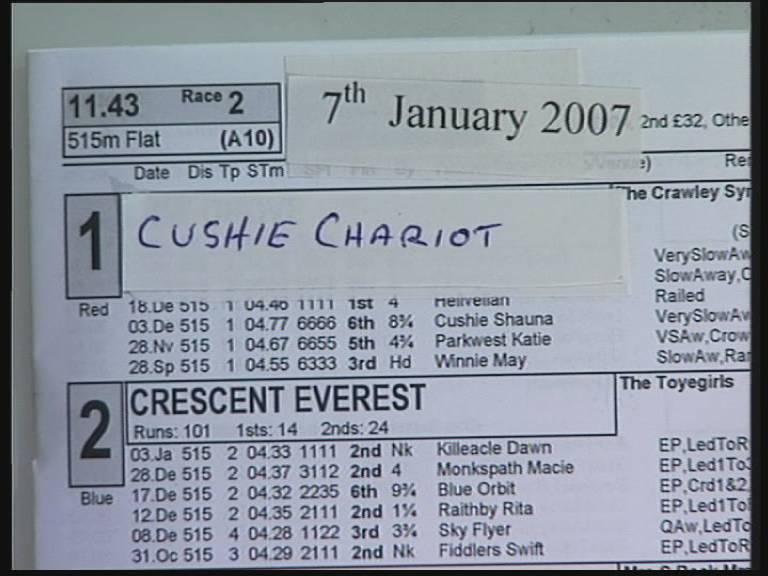 11.43 Race 2
7th January 2007
2nd £32, Othe
515m Flat (A10)
Date Dis Tp STm
Rer
1
CUSHIE CHARIOT
The Crawley Syr
(S
VerySlowAw
SlowAway,C
Red
18.De 515 1 04.46 1111 1st 4 Helivellan Railed
03.De 515 1 04.77 6666 6th 8¾ Cushie Shauna VerySlowAv
28.Nv 515 1 04.67 6655 5th 4¾ Parkwest Katie VSAw,Crow
28.Sp 515 1 04.55 6333 3rd Hd Winnie May SlowAw,Rar
2
CRESCENT EVEREST
The Toyegirls
Runs: 101 1sts: 14 2nds: 24
Blue
03.Ja 515 2 04.33 1111 2nd Nk Killeacle Dawn EP,LedToR
28.De 515 2 04.37 3112 2nd 4 Monkspath Macie EP,Led1To3
17.De 515 2 04.32 2235 6th 9¾ Blue Orbit EP,Crd1&2,
12.De 515 2 04.35 2111 2nd 1¼ Raithby Rita EP,Led1ToF
08.De 515 4 04.28 1122 3rd 3¾ Sky Flyer QAw,LedTo
31.Oc 515 3 04.29 2111 2nd Nk Fiddlers Swift EP,LedToR